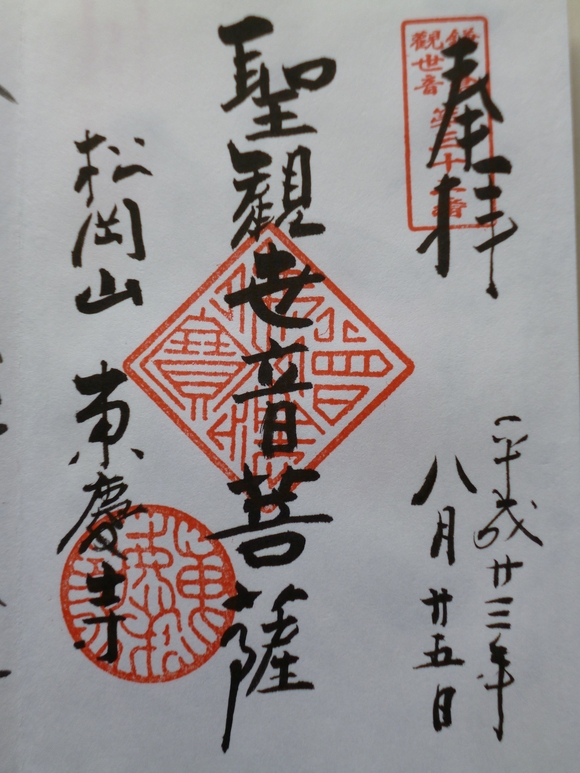 奉拝
鎌倉
觀世音
第三十二番
平成廿三年
八月廿五日
聖観世音菩薩
松岡山 東慶寺